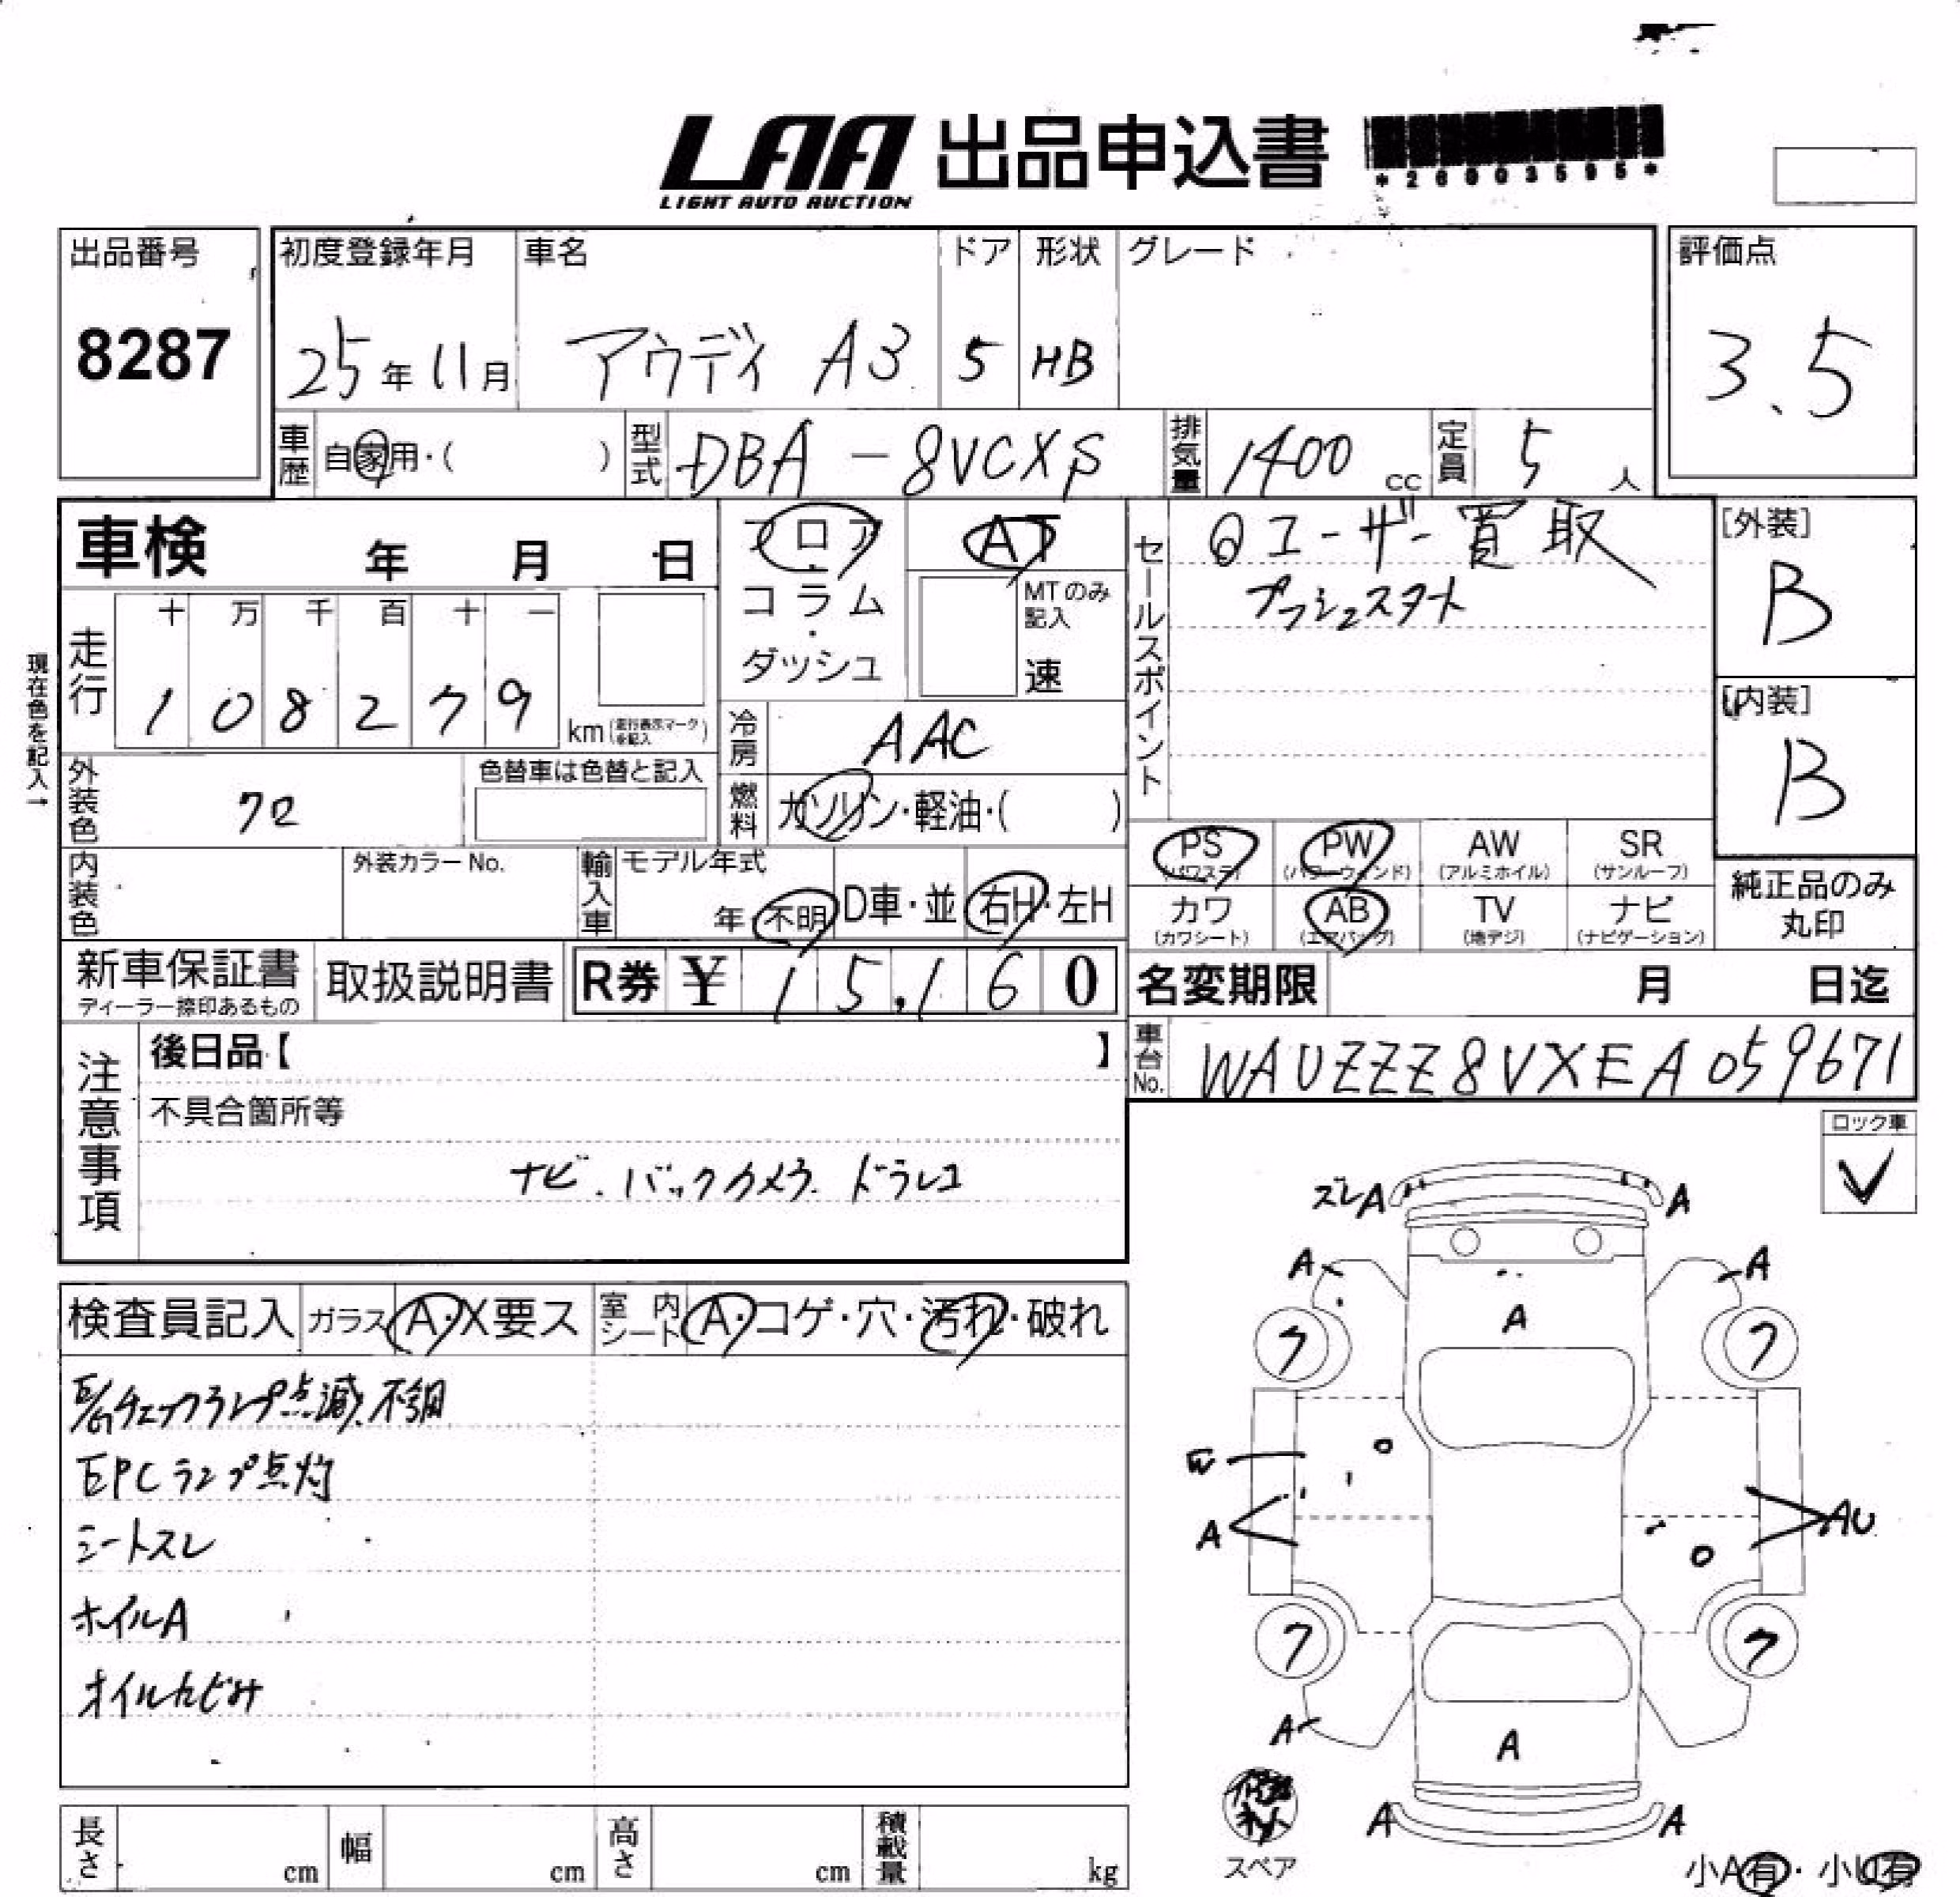 LAA 出品申込書
LIGHT AUTO AUCTION
*26003595*
出品番号
8287
初度登録年月
25年11月
車名
アウディ A3
ドア
5
形状
HB
グレード
評価点
3.5
車歴 自家用・( )
型式 DBA-8VCXS
排気量 1400 cc
定員 5 人
車検 年 月 日
フロア・コラム・ダッシュ
AT
MTのみ記入
速
セールスポイント
◎ユーザー買取
プッシュスタート
[外装]
B
[内装]
B
現在色を記入→
走行
十 万 千 百 十 一
1 0 8 2 7 9
km(走行表示マークを記入)
冷房 AAC
外装色 クロ
色替車は色替と記入
燃料 ガソリン・軽油・( )
内装色
外装カラーNo.
輸入車
モデル年式
年・不明
D車・並
右H・左H
PS(パワステ)
PW(パワーウィンド)
AW(アルミホイル)
SR(サンルーフ)
カワ(カワシート)
AB(エアバッグ)
TV(地デジ)
ナビ(ナビゲーション)
純正品のみ丸印
新車保証書
ディーラー捺印あるもの
取扱説明書
R券 ¥ 15,160
名変期限 月 日迄
車台No. WAUZZZ8VXEA059671
注意事項
後日品【 】
不具合箇所等
ナビ.バックカメラ.ドラレコ
ロック車
✓
検査員記入
ガラス A・X要ス
室内シート A・コゲ・穴・汚れ・破れ
E/Gチェックランプ点滅.不調
EPCランプ点灯
シートスレ
ホイルA
オイルにじみ
ズレA
A
A
A
A
フ
フ
E
A
AU
フ
フ
A
A
A
A
スペア
小A有・小U有
長さ cm
幅 cm
高さ cm
積載量 kg